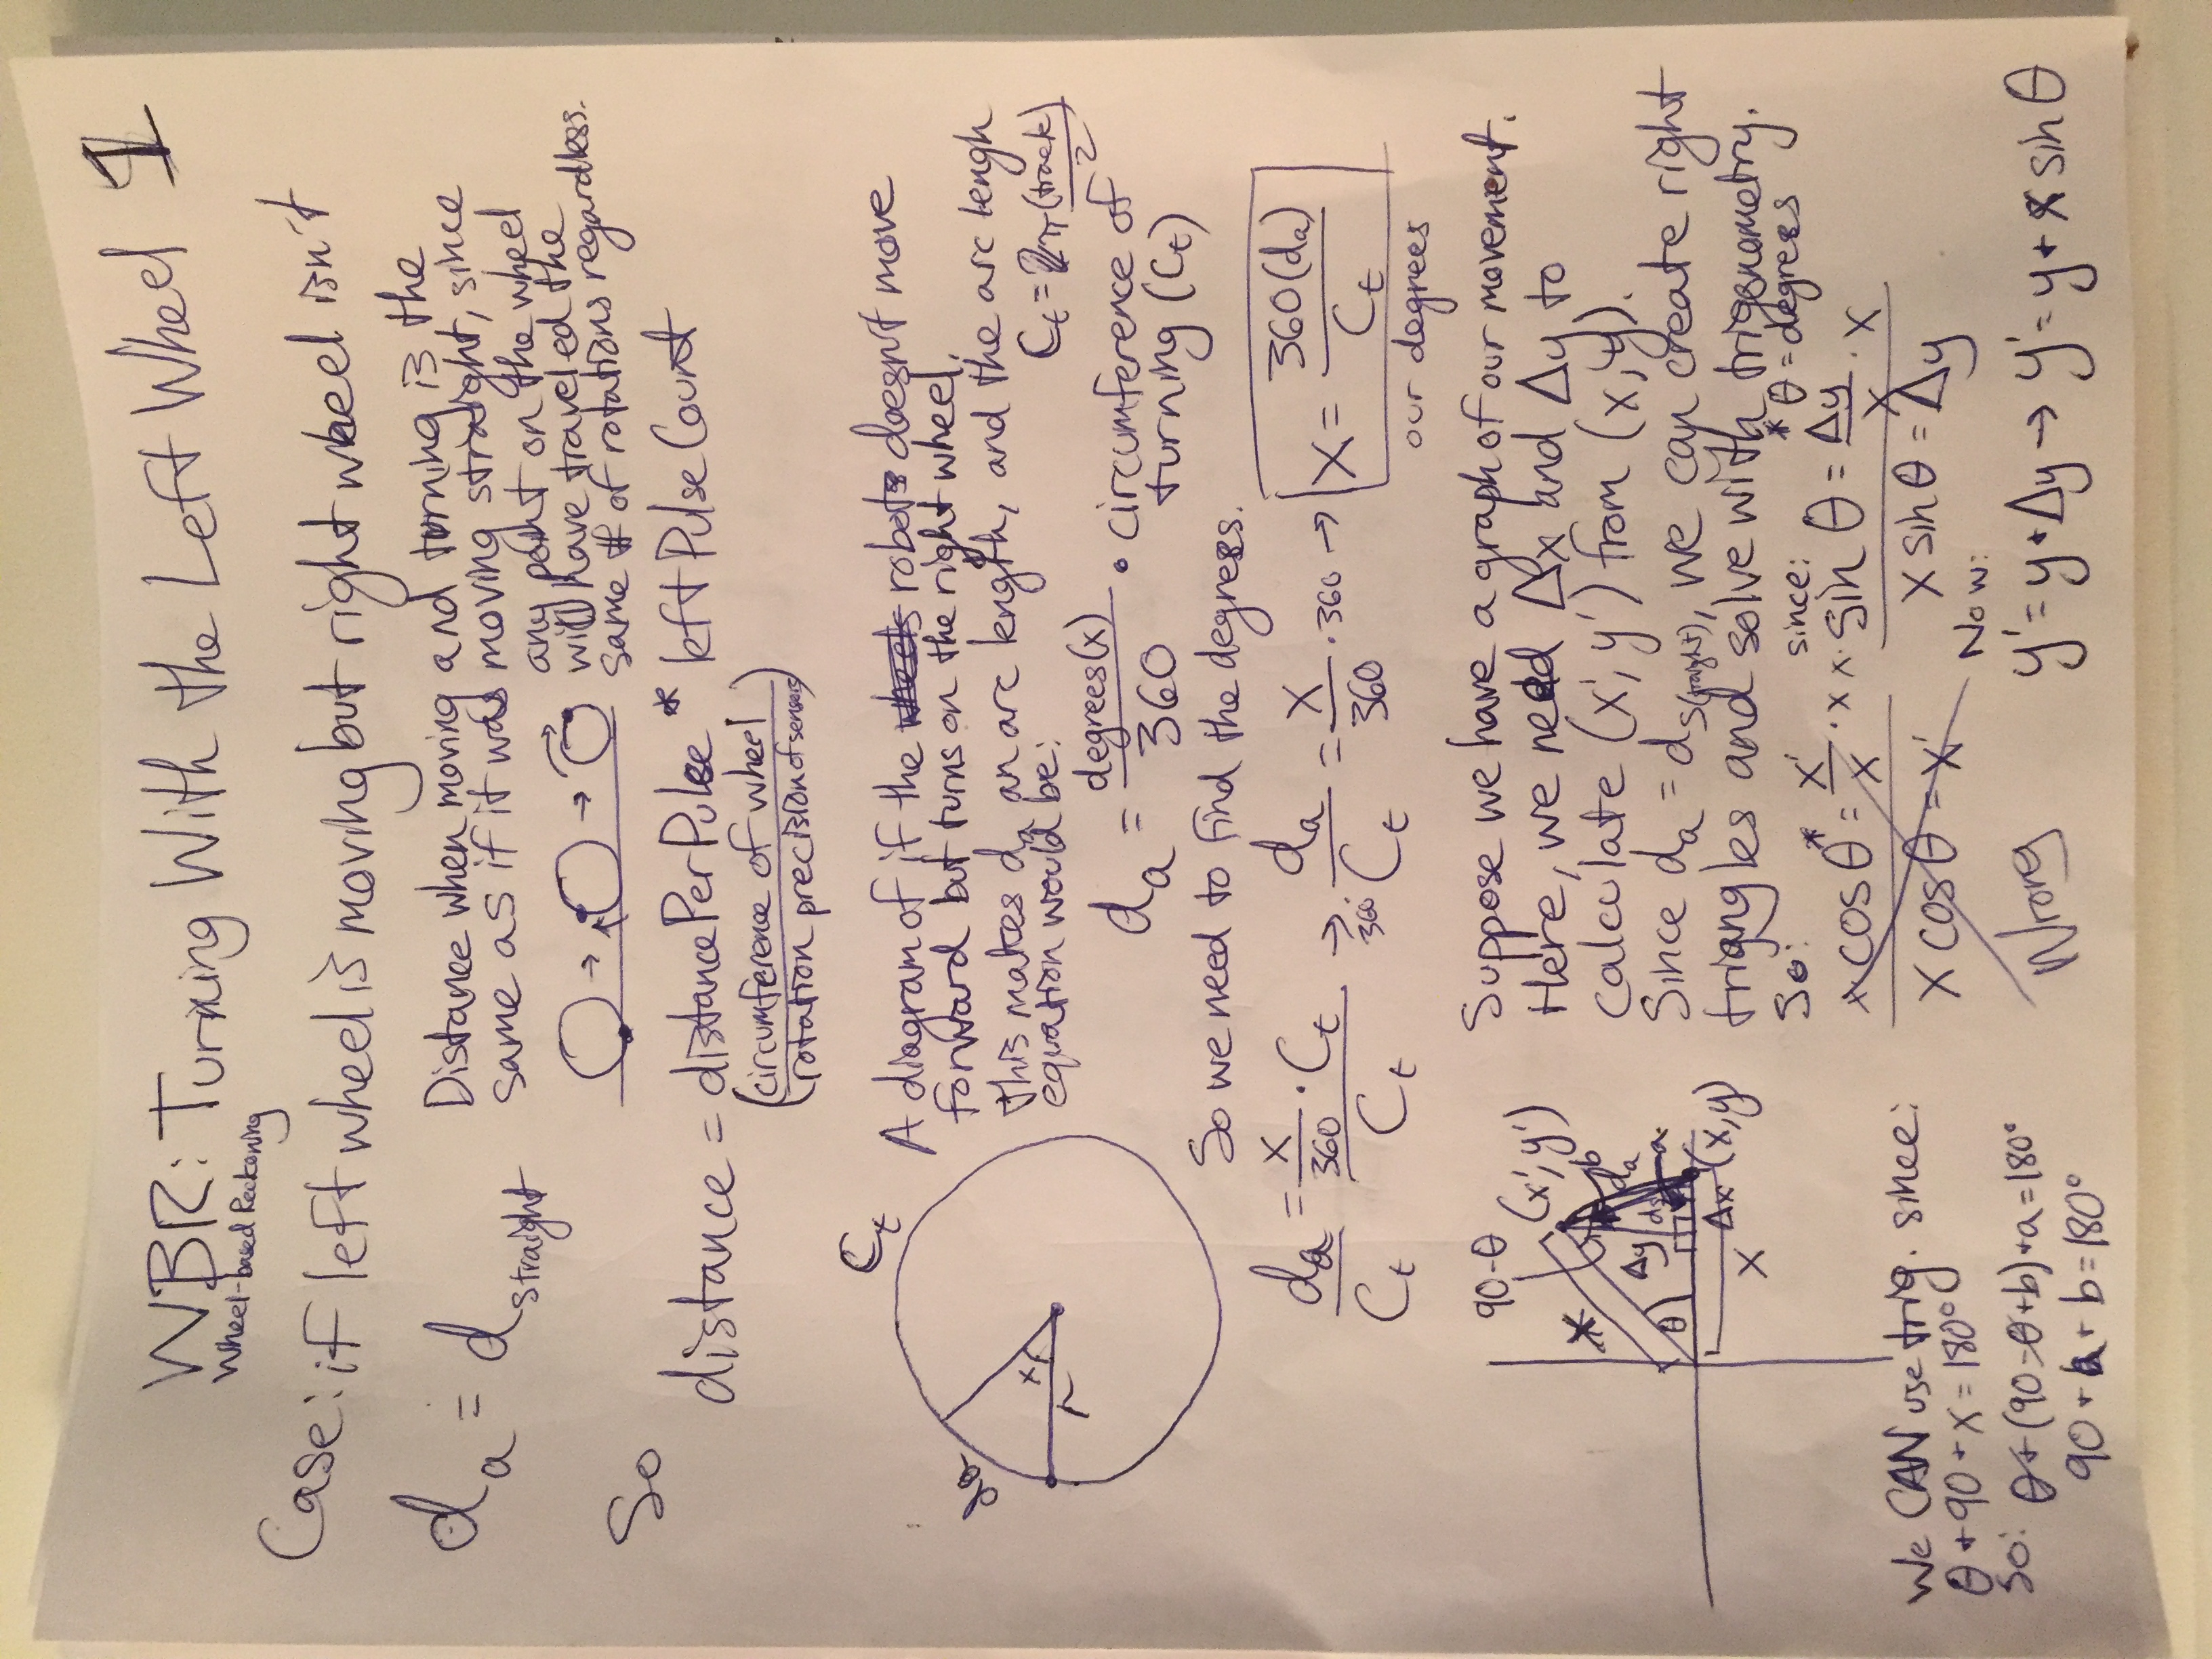 WBR: Turning With the Left Wheel 1
Wheel-based Reckoning
Case: if left wheel is moving but right wheel isn't
d_a = d_straight
Distance when moving and turning is the
same as if it was moving straight, since
any point on the wheel
will have traveled the
same # of rotations regardless.
So
distance = distancePerPulse * leftPulseCount
(circumference of wheel / rotation precision of sensors)
C_t
d_a
x
r
A diagram of if the wheels robot doesn't move
forward but turns on the right wheel.
this makes d_a an arc length, and the arc lengh
equation would be:
C_t = 2π(track)/2
d_a = degrees(x)/360 • circumference of
turning (C_t)
So we need to find the degrees.
d_a/C_t = x/360 · C_t / C_t → 360· d_a/C_t = x/360 · 360 → x = 360(d_a)/C_t
our degrees
90-θ
(x', y')
*
b
d_a
Δy
d_s
a
θ
Δx
(x,y)
x
Suppose we have a graph of our movement.
Here, we need Δx and Δy to
calculate (x', y') from (x,y).
Since d_a = d_s(traight), we can create right
triangles and solve with trigonometry.
So:
since:
* θ = degrees
x cos θ* = x'/x · x
x · sin θ = Δy/x · x
x cos θ = x'
x sin θ = Δy
Wrong
Now:
y' = y + Δy → y' = y + x sin θ
We CAN use trig. since:
θ + 90 + x = 180°
So: θ + (90 - θ + b) + a = 180°
90 + a + b = 180°